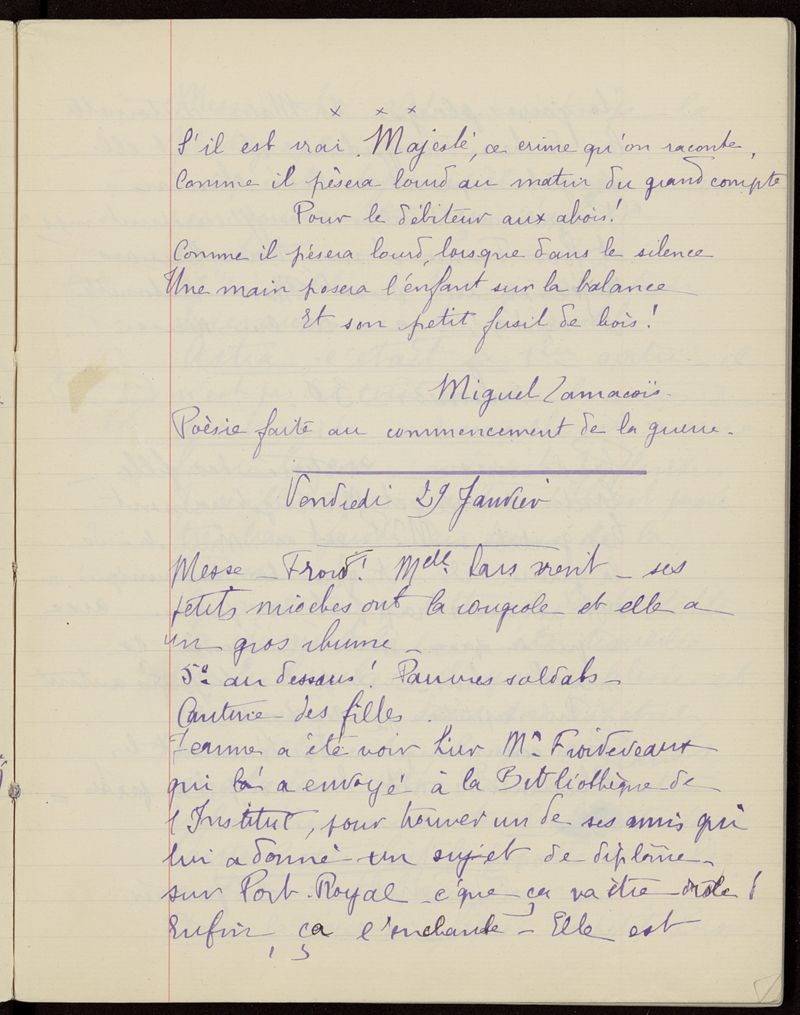 x x x
S'il est vrai, Majesté, ce crime qu'on raconte,
Comme il pèsera lourd au matin du grand compte
Pour le débiteur aux abois!
Comme il pèsera lourd, lorsque dans le silence
Une main posera l'enfant sur la balance
Et son petit fusil de bois!
Miguel Zamacoïs.
Poèsie faite au commencement de la guerre.
Vendredi 29 Janvier
Messe – Froid! Melle vient – ses
petits mioches ont la rougeole et elle a
un gros rhume –
5° au dessous! Pauvres soldats –
Cantine des filles.
Jeanne a été voir hier Mr Froidevaux
qui l'a envoyé à la Bibliothèque de
l'Institut, pour trouver un de ses amis qui
lui a donné un sujet de diplôme –
sur Port-Royal – c'que ça va être drôle!
Enfin, ça l'enchante – Elle est